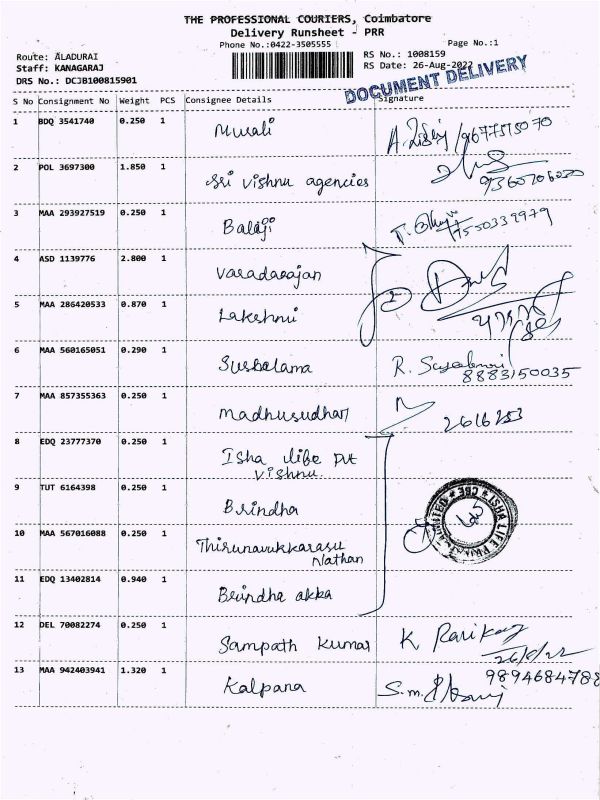 THE PROFESSIONAL COURIERS, Coimbatore
Delivery Runsheet - PRR
Phone No.:0422-3505555
Page No.:1
Route: ALADURAI
RS No.: 1008159
Staff: KANAGARAJ
RS Date: 26-Aug-2022
DRS No.: DCJB100815901
DOCUMENT DELIVERY
S No Consignment No Weight PCS Consignee Details Signature
1 BDQ 3541740 0.250 1 Murali
2 POL 3697300 1.850 1 Sri Vishnu agencies
3 MAA 293927519 0.250 1 Balaji 7550339979
4 ASD 1139776 2.800 1 Varadarajan
5 MAA 286420533 0.870 1 Lakshmi
6 MAA 560165051 0.290 1 Susbalama R.
8883150035
7 MAA 857355363 0.250 1 Madhusudhan
8 EDQ 23777370 0.250 1 Isha life pvt
Vishnu.
9 TUT 6164398 0.250 1 Brindha
ISHA LIFE PRIVATE LIMITED * CBE *
10 MAA 567016088 0.250 1 Thirunavukkarasu
Nathan
11 EDQ 13402814 0.940 1 Brindha akka
12 DEL 70082274 0.250 1 Sampath kumar K
26/8/22
13 MAA 942403941 1.320 1 Kalpana S.m.
9894684788